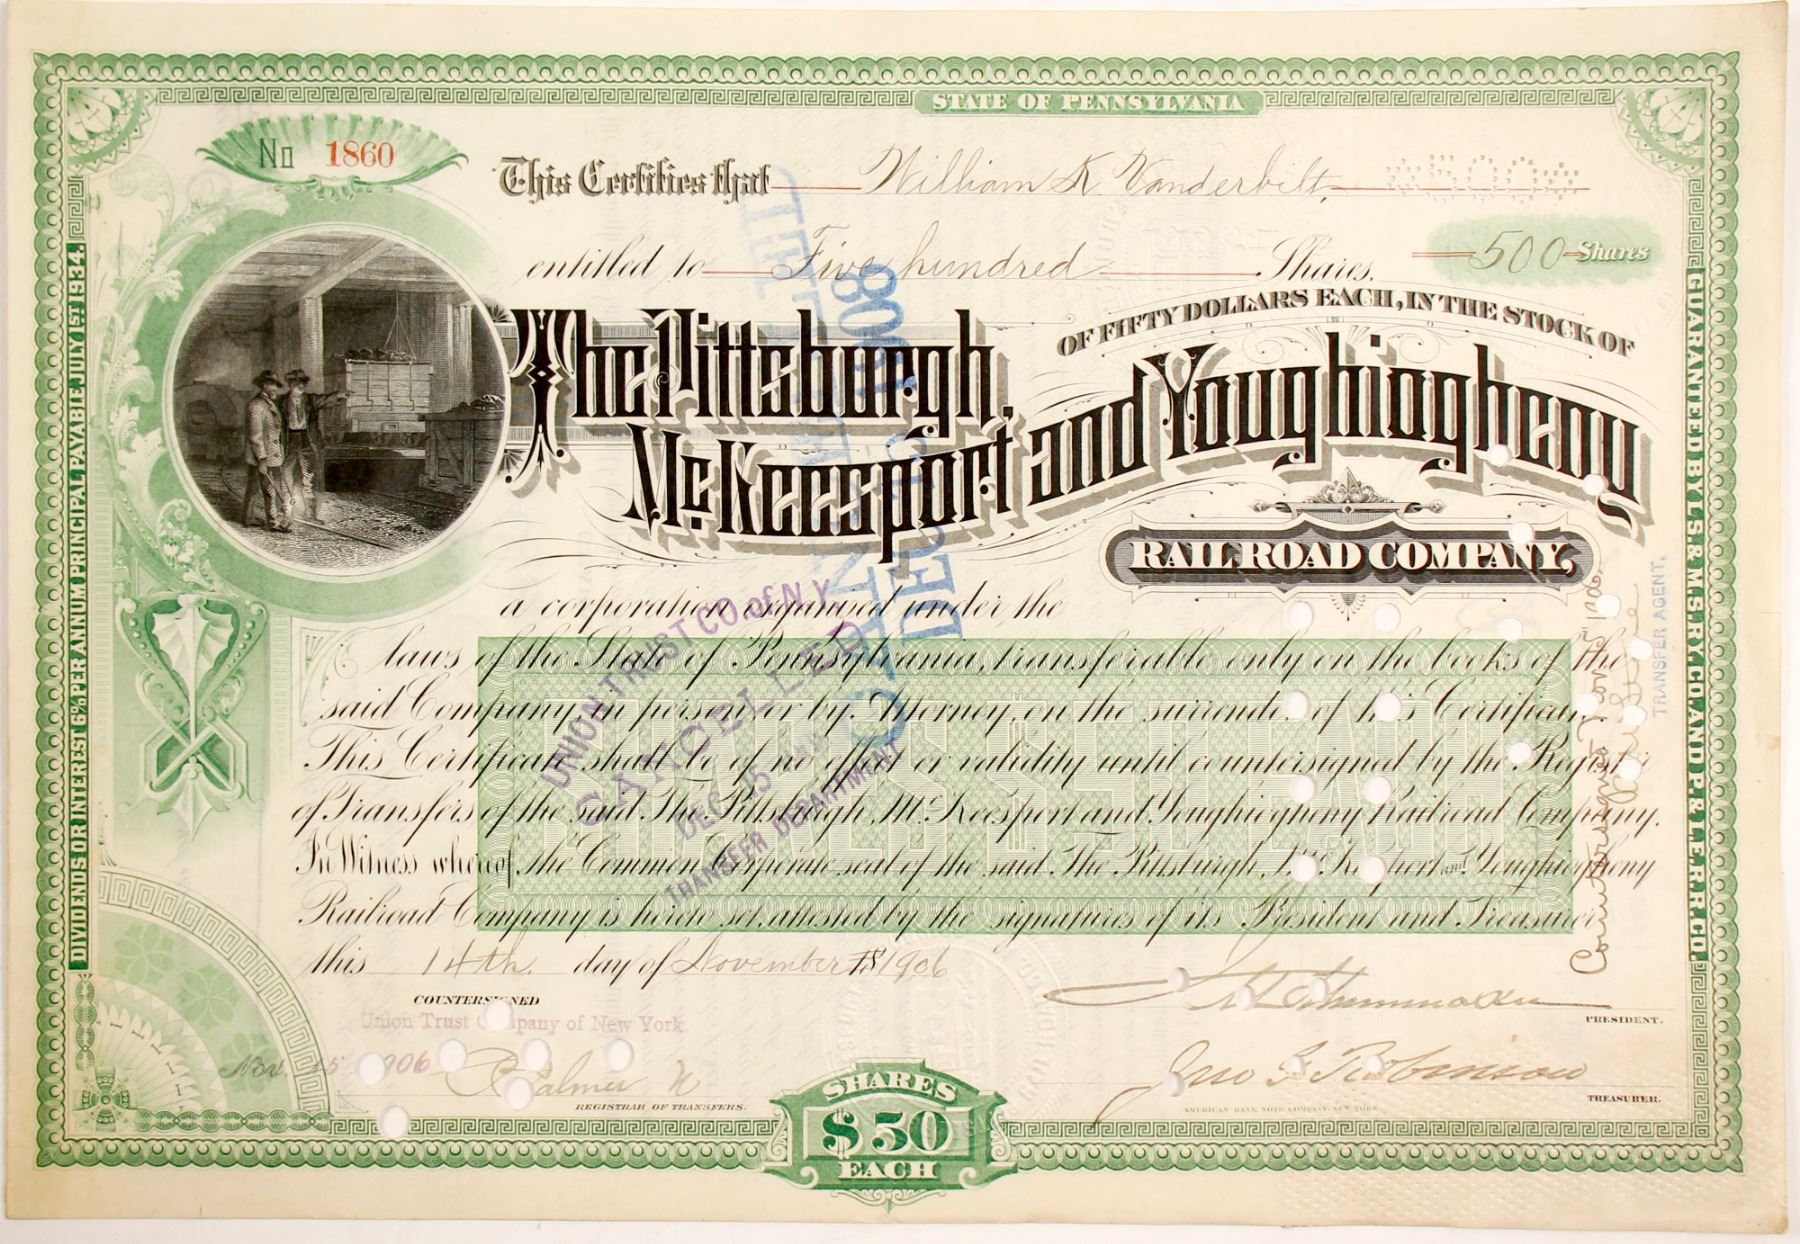 STATE OF PENNSYLVANIA
No 1860
This Certifies that William K Vanderbilt, *500*
entitled to Five hundred Shares. 500 Shares
OF FIFTY DOLLARS EACH, IN THE STOCK OF
The Pittsburgh, McKeesport and Youghiogheny
RAIL ROAD COMPANY,
a corporation organised under the
laws of the State of Pennsylvania, transferable only on the books of the
said Company in person or by Attorney, on the surrender of this Certificate.
This Certificate shall be of no effect or validity until countersigned by the Register
of Transfers of the said The Pittsburgh, McKeesport and Youghiogheny Railroad Company.
In Witness whereof, the Common Corporate seal of the said The Pittsburgh, McKeesport and Youghiogheny
Railroad Company is hereto set, attested by the signatures of its President and Treasurer
this 14th. day of November 18 1906
COUNTERSIGNED
Union Trust Company of New York.
Nov. 15 1906
Palmer
REGISTRAR OF TRANSFERS.
PRESIDENT.
Jno G Robinson
TREASURER.
AMERICAN BANK NOTE COMPANY, NEW YORK
SHARES
$50
EACH
DIVIDENDS OR INTEREST 6% PER ANNUM PRINCIPAL PAYABLE JULY 1ST 1934.
GUARANTEED BY L.S. & M.S. RY. CO. AND P. & L.E. R.R. CO.
UNION TRUST CO. of N.Y.
CANCELLED
DEC
TRANSFER DEPARTMENT
Countersigned Nov 15 1906.
TRANSFER AGENT.
SHARES $50 EACH